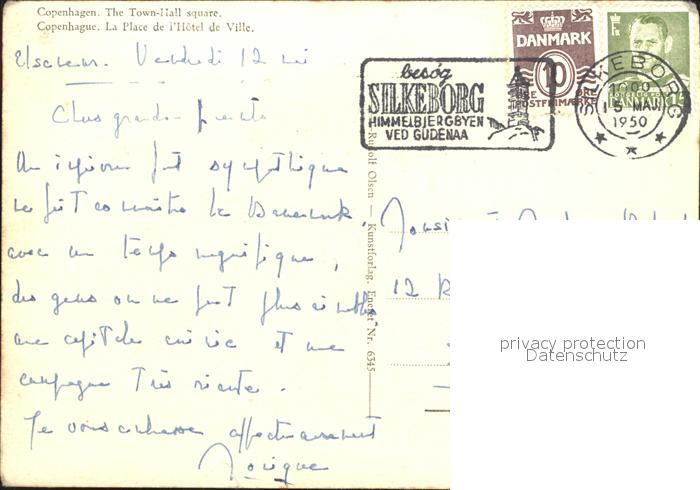 Copenhagen. The Town-Hall square.
Copenhague. La Place de l'Hôtel de Ville.
Vendredi 12
Chers grands parents
Un ingénieur fort sympathique
me fait connaître le Danemark,
avec un temps magnifique,
des gens on ne peut plus aimables,
une capitale et une
campagne très riante.
Je vous embrasse affectueusement
besøg
SILKEBORG
HIMMELBJERGBYEN
VED GUDENAA
DANMARK
10
ØRE ØRE
POSTFRIMÆRKE
SILKEBORG
15 MAJ
1950
DANMARK
Rudolf Olsen — Kunstforlag. Eneret Nr. 6345
12
privacy protection
Datenschutz